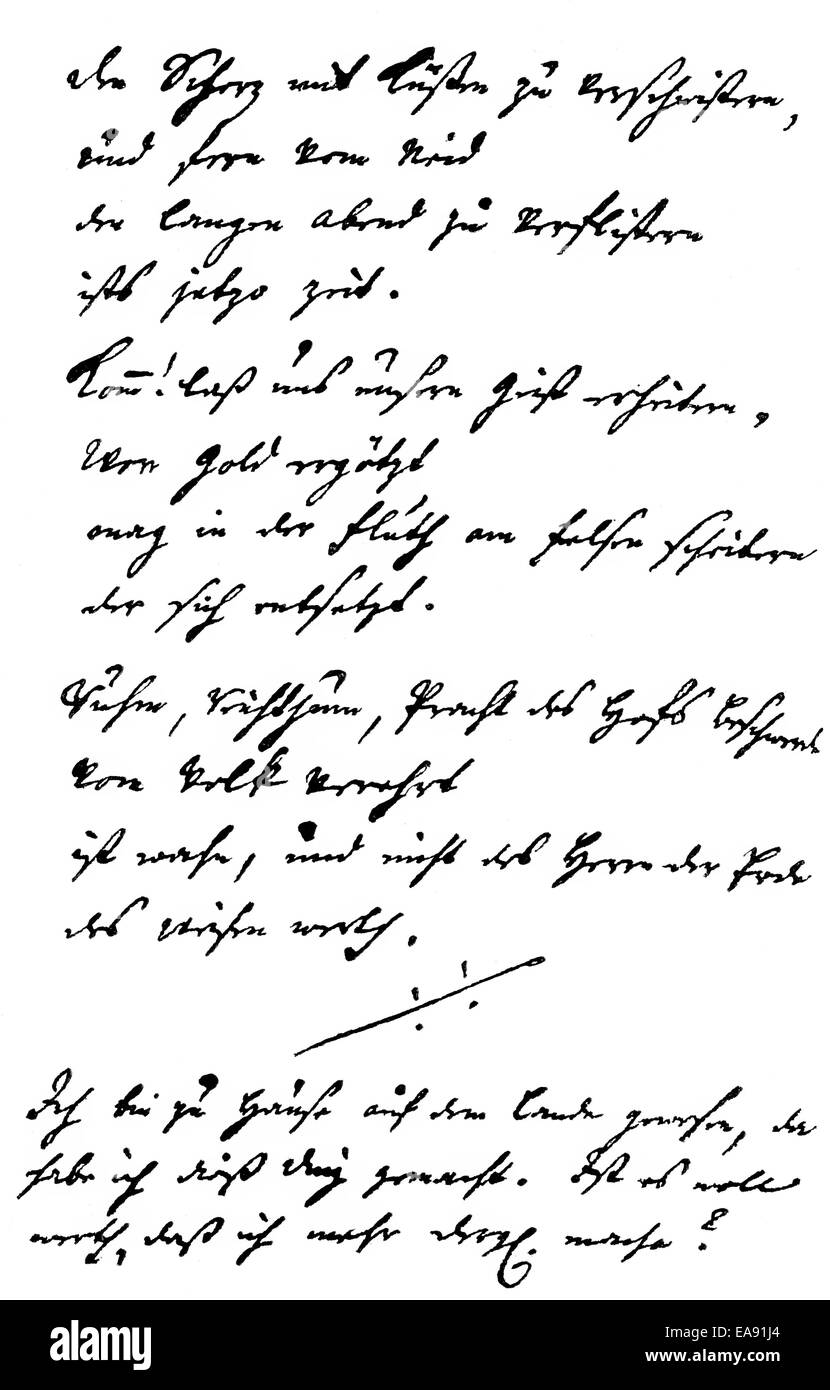 den Scherz mit Küßen zu verschwistern,
und fern vom Neid
den langen abend zu verflistern
ists jetzo zeit.
Kom̅! laß uns unsern Geist erheitern.
Von Gold ergötzt
mag in der Fluth am Felsen scheitern
der sich entsetzt.
Ruhm, Reichthum, Pracht des Hofs beschwerde
vom Volk verehrt
ist wahn, und nicht des Herrn der Erde
des weisen werth.
Ich bin zu Hause auf dem Lande gewesen, da
habe ich dieß Ding gemacht. Ist es woll
werth, daß ich mehr dergl. mache?
alamy
Image ID: EA91J4
www.alamy.com